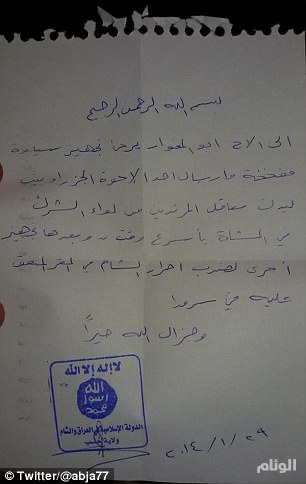 بسم الله الرحمن الرحيم
الى الاخ ابو المغوار يرجى تجهيز سيارة
مفخخة وارسال احد الاخوة الجزراويين
ليدك معاقل المرتدين من لواء
في المشاة بأسرع وقت وبعدها تجهيز
أخرى لضرب احرار الشام في المقر المتفق
عليه في سرمدا
وجزاك الله خيراً
لا إله إلا الله
الله
رسول
محمد
الدولة الإسلامية في العراق والشام
ولاية حلب
٢٠١٤/١/٢٩
الوئام
© Twitter/@abja77